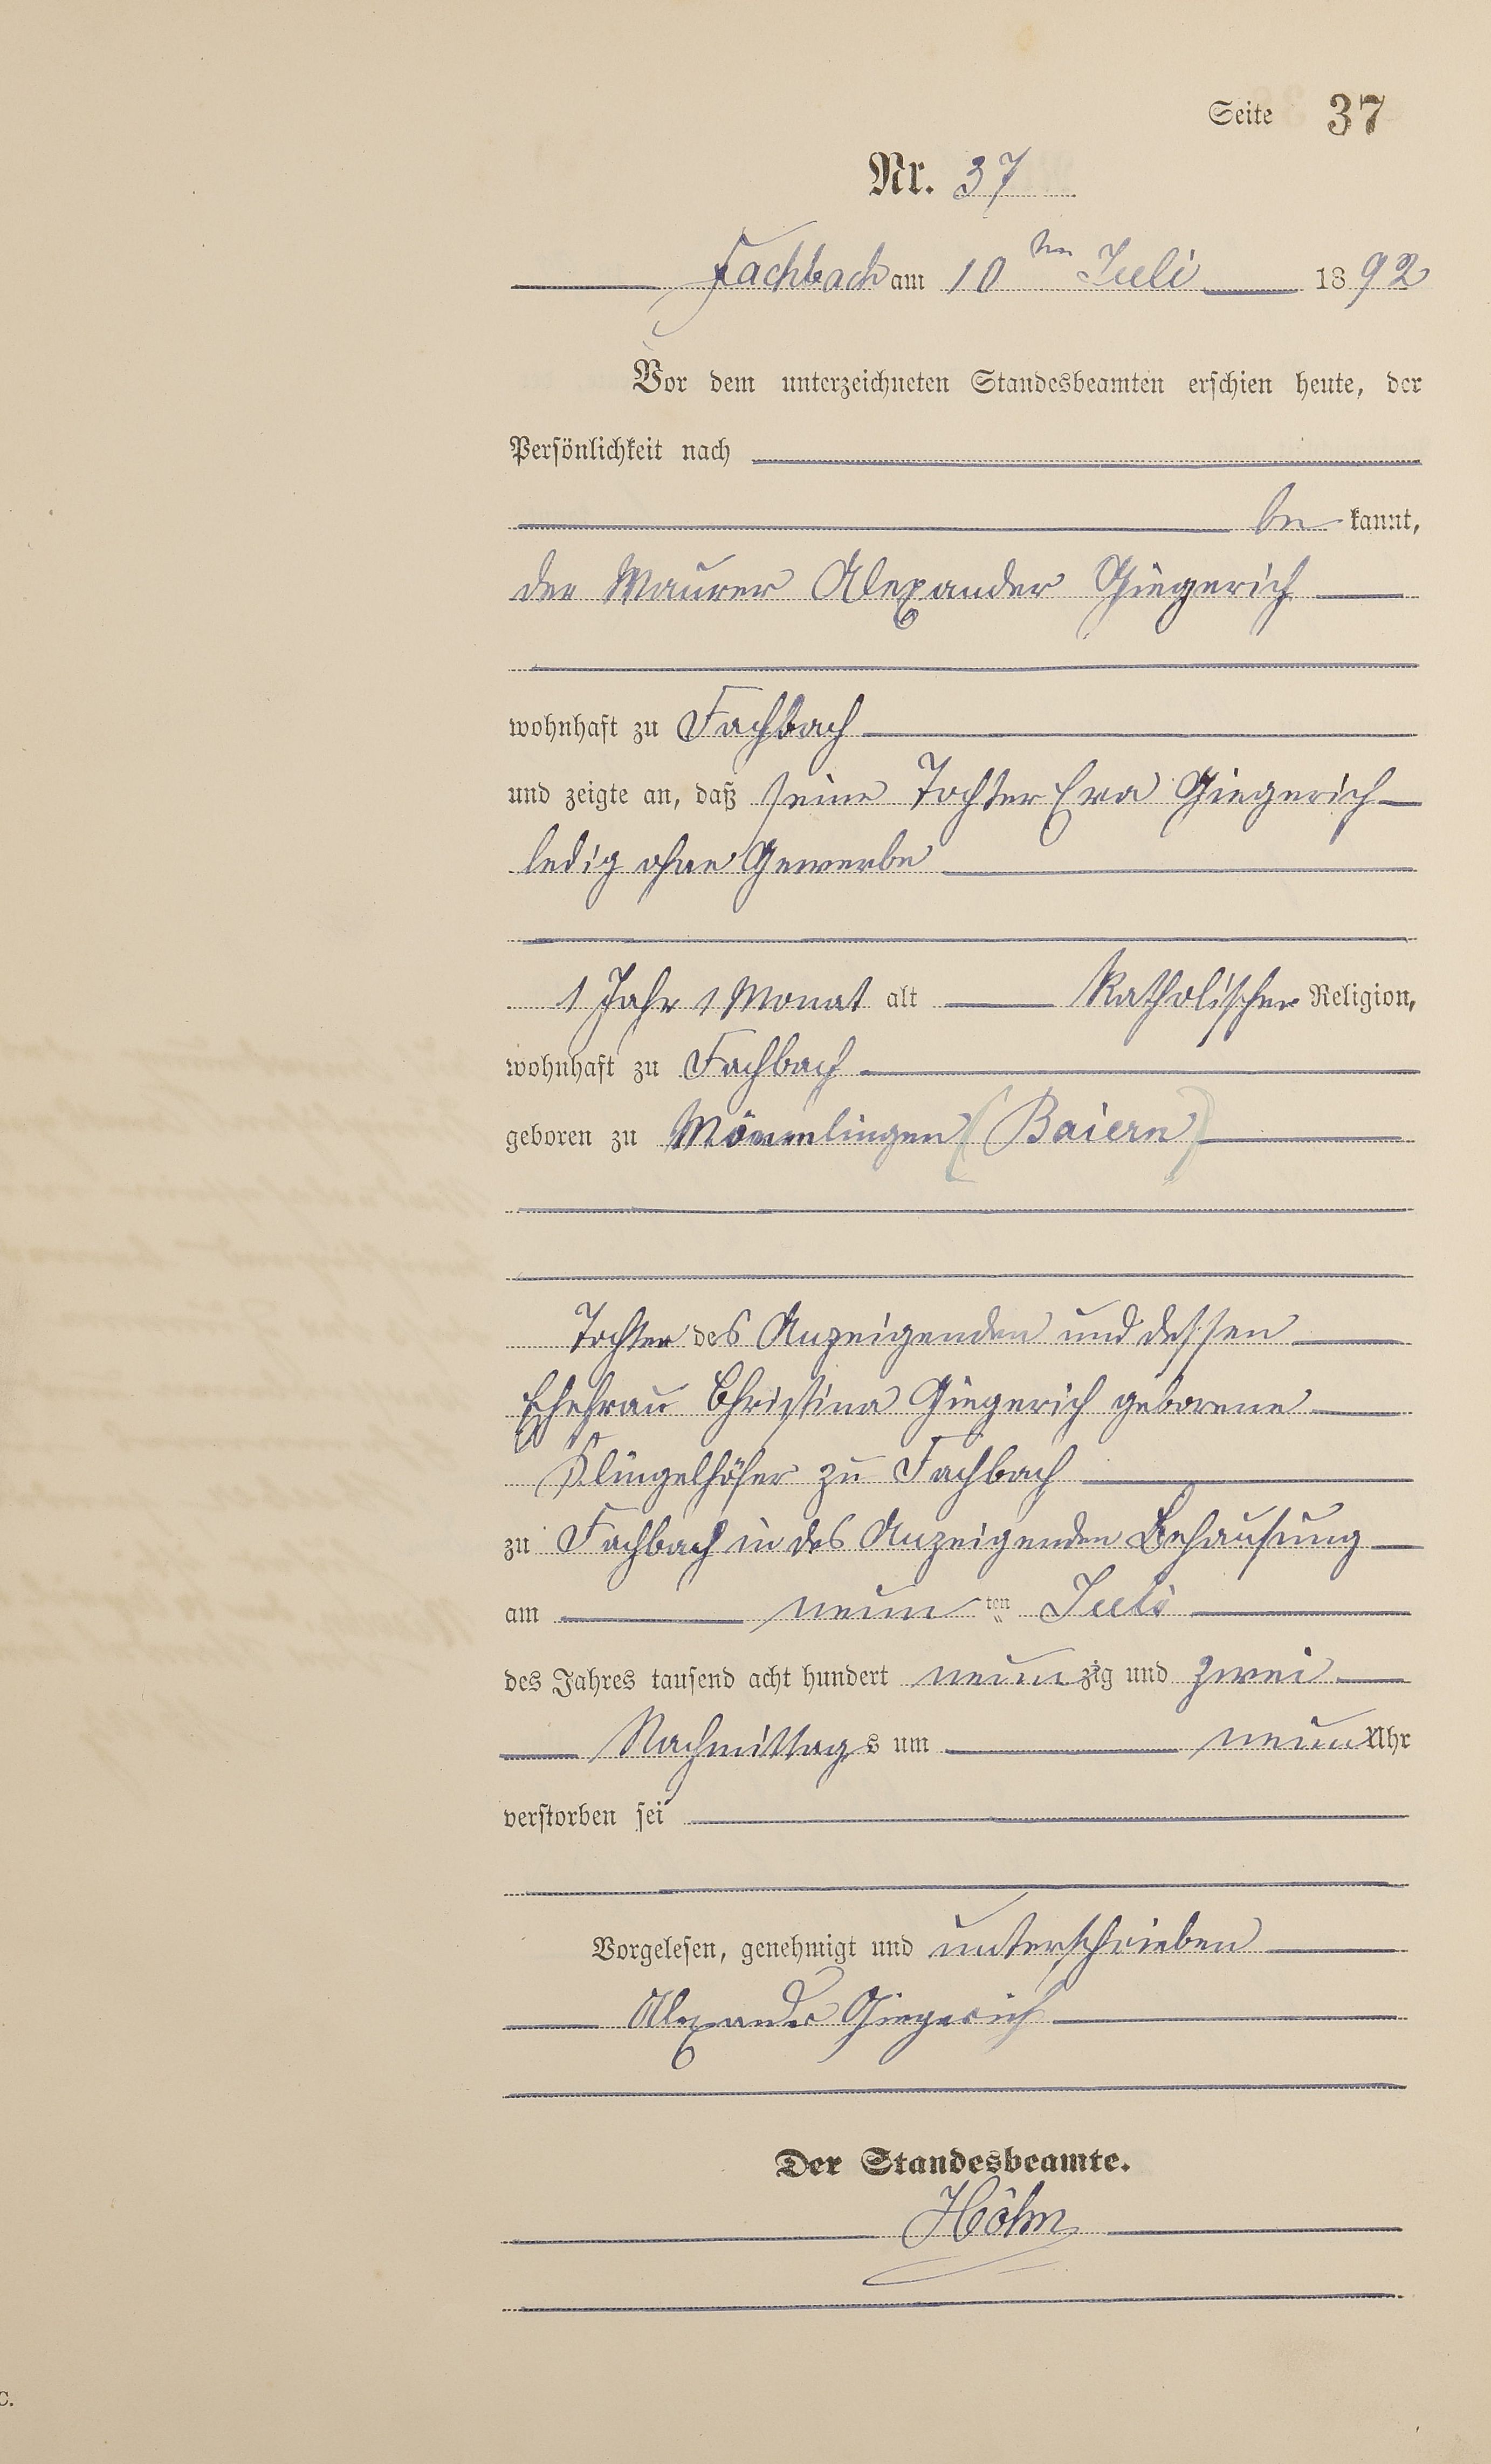 Seite 37
Nr. 37
Fachbach am 10ten Juli 1892
Vor dem unterzeichneten Standesbeamten erschien heute, der
Persönlichkeit nach
be kannt,
der Maurer Alexander Giegerich
wohnhaft zu Fachbach
und zeigte an, daß seine Tochter Eva Giegerich
ledig ohne Gewerbe
1 Jahr 1 Monat alt katholischer Religion,
wohnhaft zu Fachbach
geboren zu Mömmlingen (Baiern)
Tochter des Anzeigenden und dessen
Ehefrau Christina Giegerich geborene
Klingelhöfer zu Fachbach
zu Fachbach in des Anzeigenden Behausung
am neun ten Juli
des Jahres tausend acht hundert neunzig und zwei
Nachmittags um neun Uhr
verstorben sei
Vorgelesen, genehmigt und unterschrieben
Alexander Giegerich
Der Standesbeamte.
Höhn
C.